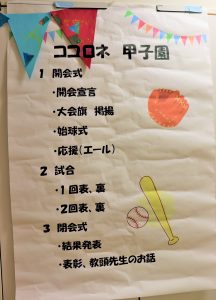 ココロネ 甲子園
1 開会式
・開会宣言
・大会旗 掲揚
・始球式
・応援(エール)
2 試合
・1回表、裏
・2回表、裏
3 閉会式
・結果発表
・表彰、教頭先生のお話